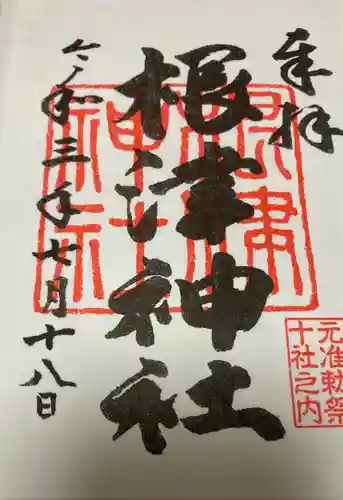 奉拝
根津神社
根津
神社
元准勅祭
十社之内
令和三年七月十八日